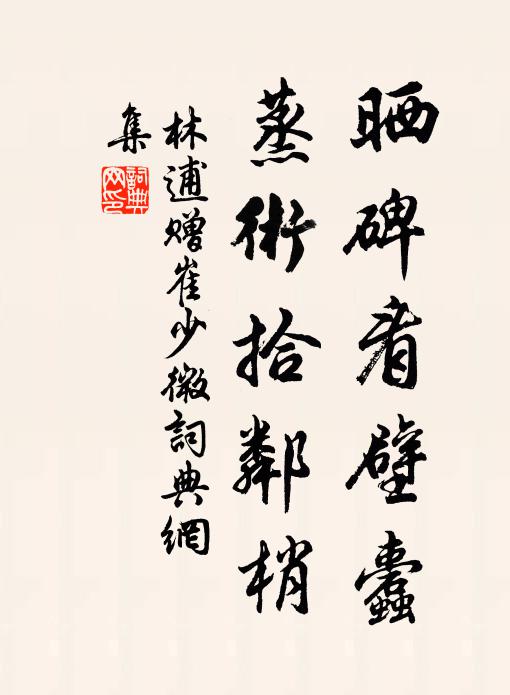 晒碑看壁蠹
蒸術拾鄰梢
林逋贈崔少微詞典網
集
詞典
网印